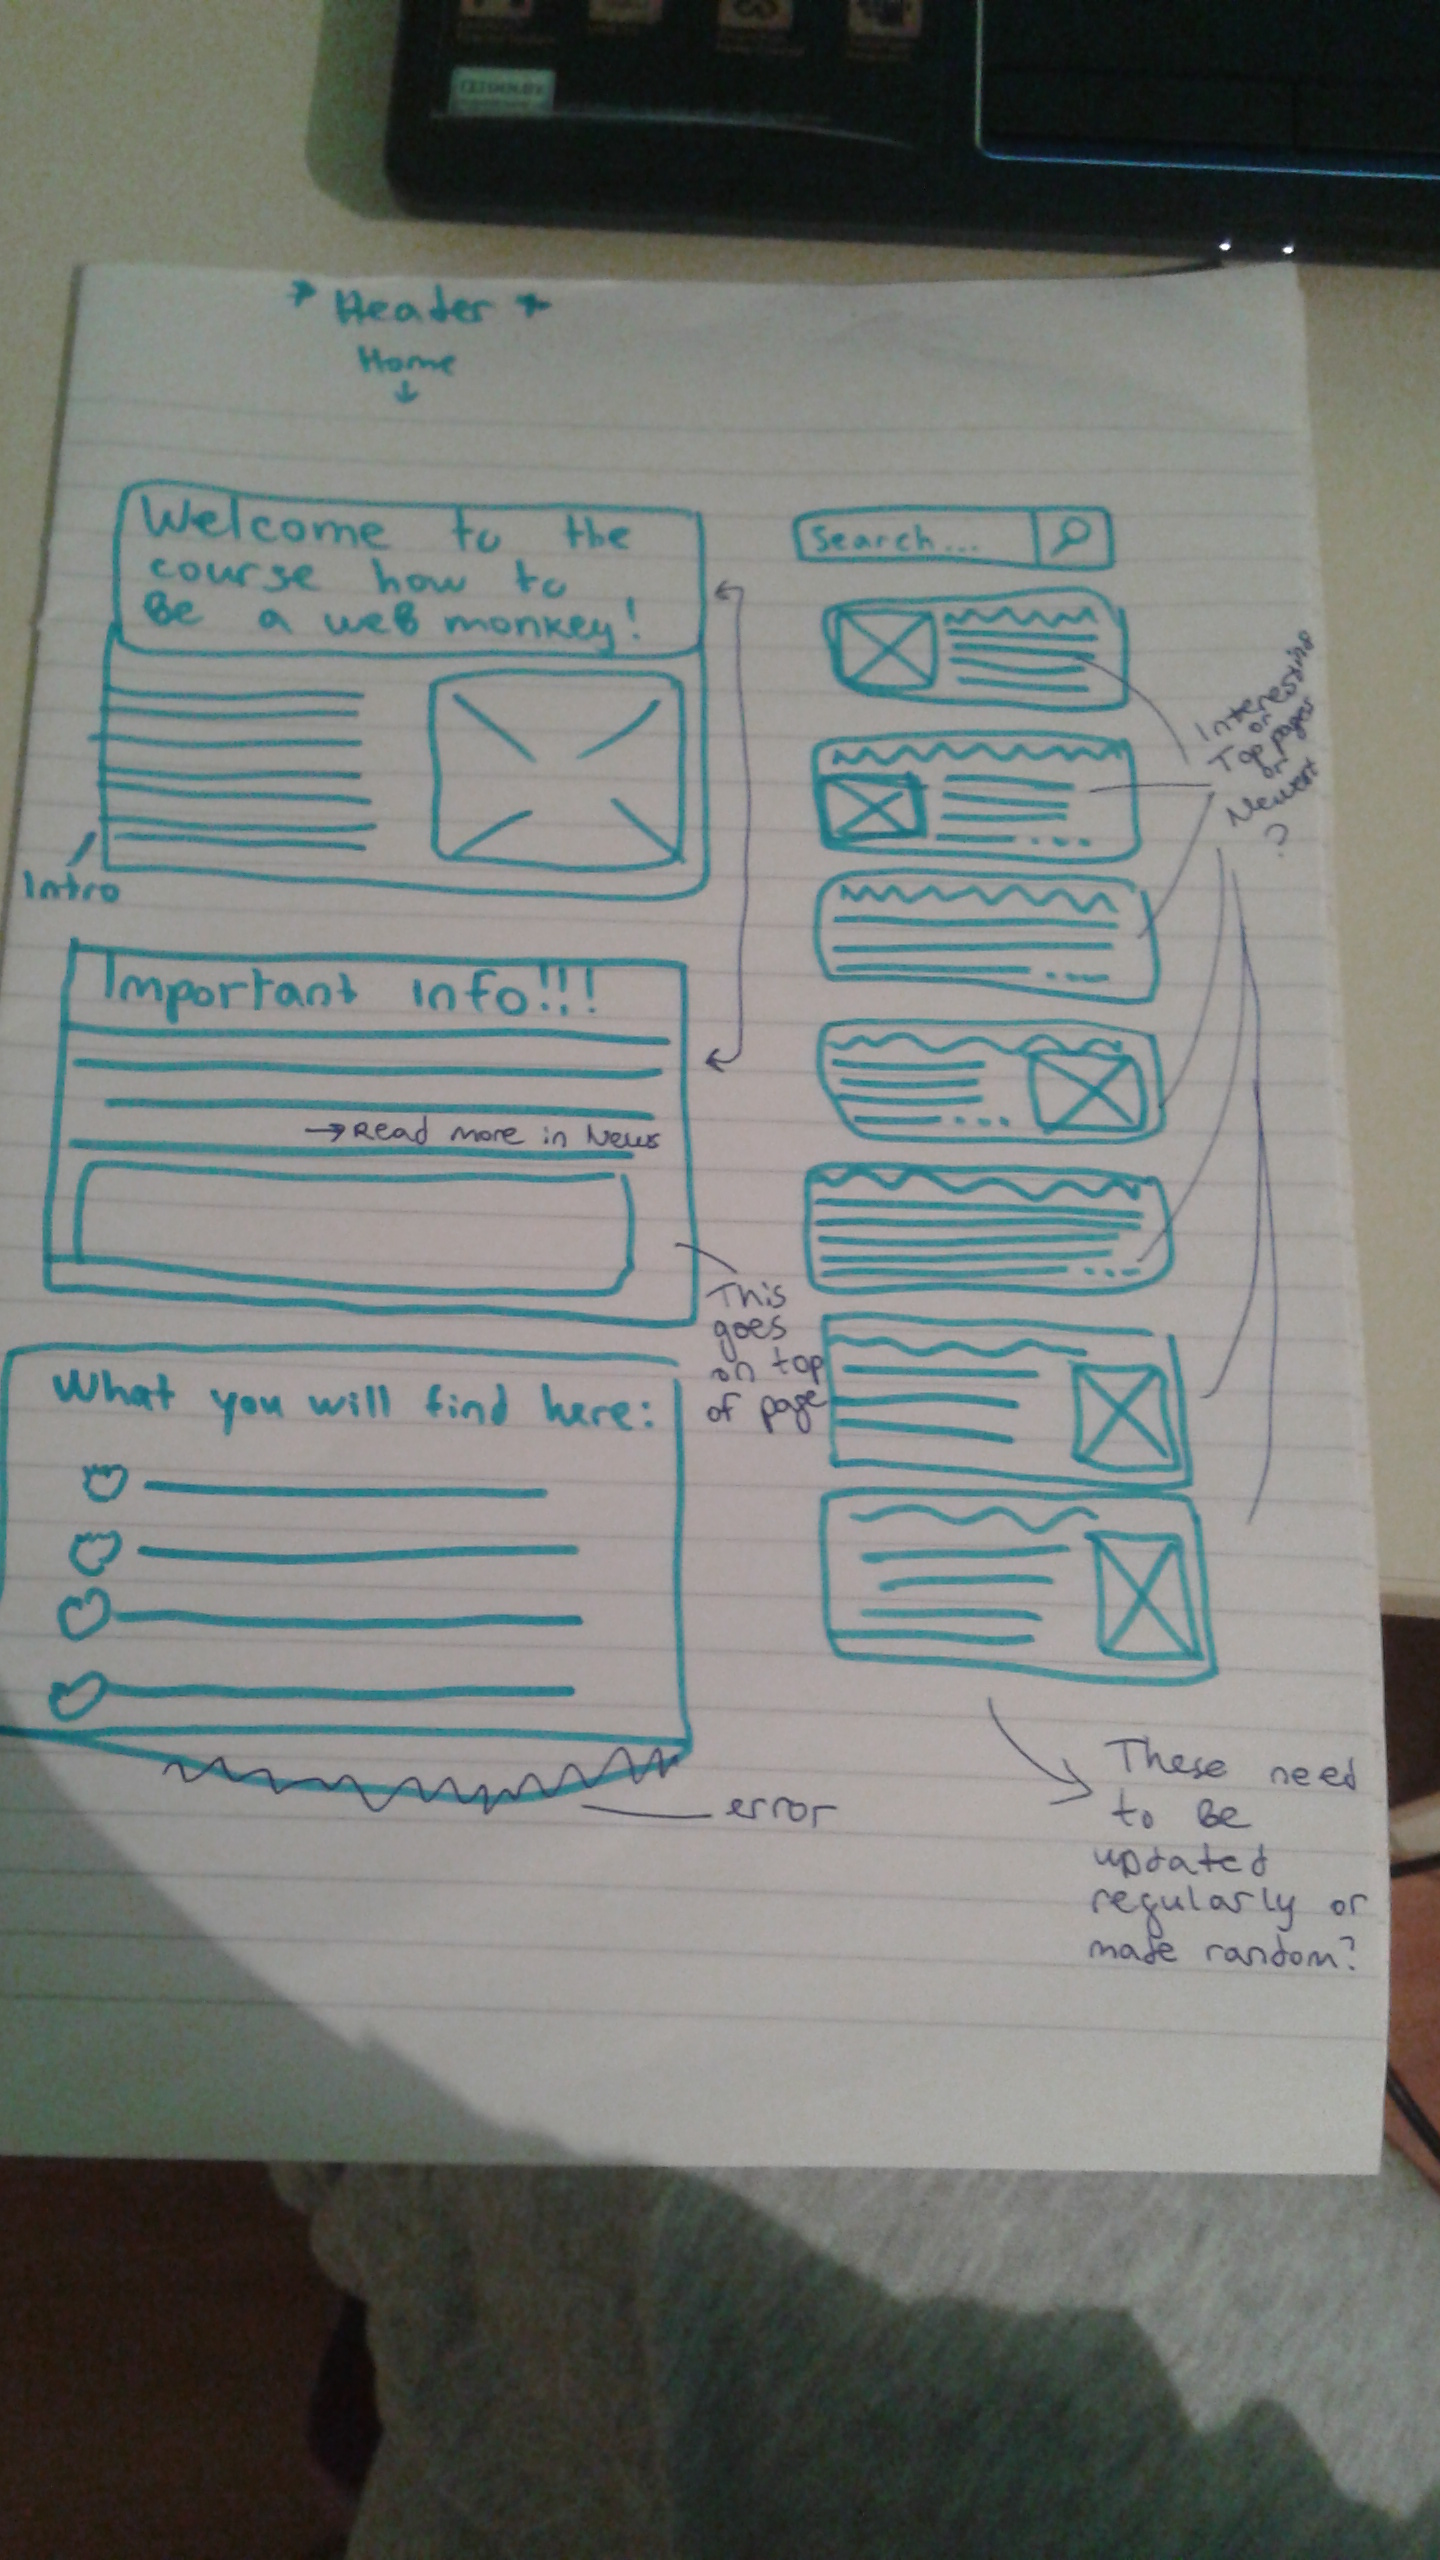 * Header *
Home
Welcome to the
course how to
Be a web monkey!
Intro
Important info!!!
→ Read more in News
This
goes
on top
of page
What you will find here:
error
Search...
Interesting
or
Top pages
or
Newest
?
These need
to Be
updated
regularly or
made random?